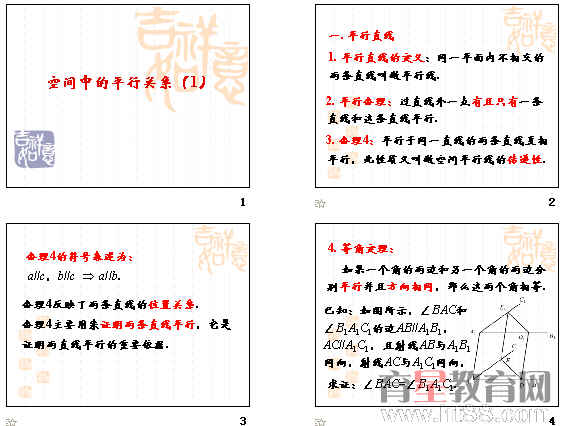 空间中的平行关系（1）
1
一.平行直线
1. 平行直线的定义：同一平面内不相交的
两条直线叫做平行线.
2. 平行公理：过直线外一点有且只有一条
直线和这条直线平行.
3. 公理4：平行于同一直线的两条直线互相
平行，此性质又叫做空间平行线的传递性.
2
公理4的符号表述为：
a//c，b//c ⇒ a//b.
公理4反映了两条直线的位置关系.
公理4主要用来证明两条直线平行，它是
证明两直线平行的重要依据.
3
4. 等角定理：
如果一个角的两边和另一个角的两边分
别平行并且方向相同，那么这两个角相等.
已知：如图所示，∠BAC和
∠B₁A₁C₁的边AB//A₁B₁，
AC//A₁C₁，且射线AB与A₁B₁
同向，射线AC与A₁C₁同向，
求证：∠BAC=∠B₁A₁C₁.
4
育星教育网